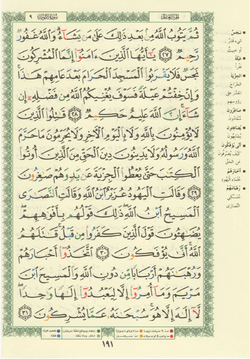 ثُمَّ يَتُوبُ اللَّهُ مِنۢ بَعْدِ ذَٰلِكَ عَلَىٰ مَن يَشَآءُ وَاللَّهُ غَفُورٌ
رَّحِيمٌ ٢٧ يَٰٓأَيُّهَا الَّذِينَ ءَامَنُوٓا۟ إِنَّمَا الْمُشْرِكُونَ
نَجَسٌ فَلَا يَقْرَبُوا۟ الْمَسْجِدَ الْحَرَامَ بَعْدَ عَامِهِمْ هَٰذَا
وَإِنْ خِفْتُمْ عَيْلَةً فَسَوْفَ يُغْنِيكُمُ اللَّهُ مِن فَضْلِهِۦٓ إِن
شَآءَ إِنَّ اللَّهَ عَلِيمٌ حَكِيمٌ ٢٨ قَٰتِلُوا۟ الَّذِينَ
لَا يُؤْمِنُونَ بِاللَّهِ وَلَا بِالْيَوْمِ الْءَاخِرِ وَلَا يُحَرِّمُونَ مَا حَرَّمَ
اللَّهُ وَرَسُولُهُۥ وَلَا يَدِينُونَ دِينَ الْحَقِّ مِنَ الَّذِينَ أُوتُوا۟
الْكِتَٰبَ حَتَّىٰ يُعْطُوا۟ الْجِزْيَةَ عَن يَدٍ وَهُمْ صَٰغِرُونَ
٢٩ وَقَالَتِ الْيَهُودُ عُزَيْرٌ ابْنُ اللَّهِ وَقَالَتِ النَّصَٰرَى
الْمَسِيحُ ابْنُ اللَّهِ ذَٰلِكَ قَوْلُهُم بِأَفْوَٰهِهِمْ
يُضَٰهِـُٔونَ قَوْلَ الَّذِينَ كَفَرُوا۟ مِن قَبْلُ قَٰتَلَهُمُ
اللَّهُ أَنَّىٰ يُؤْفَكُونَ ٣٠ اتَّخَذُوٓا۟ أَحْبَارَهُمْ
وَرُهْبَٰنَهُمْ أَرْبَابًا مِّن دُونِ اللَّهِ وَالْمَسِيحَ ابْنَ
مَرْيَمَ وَمَآ أُمِرُوٓا۟ إِلَّا لِيَعْبُدُوٓا۟ إِلَٰهًا وَٰحِدًا
لَّآ إِلَٰهَ إِلَّا هُوَ سُبْحَٰنَهُۥ عَمَّا يُشْرِكُونَ ٣١
١٩١